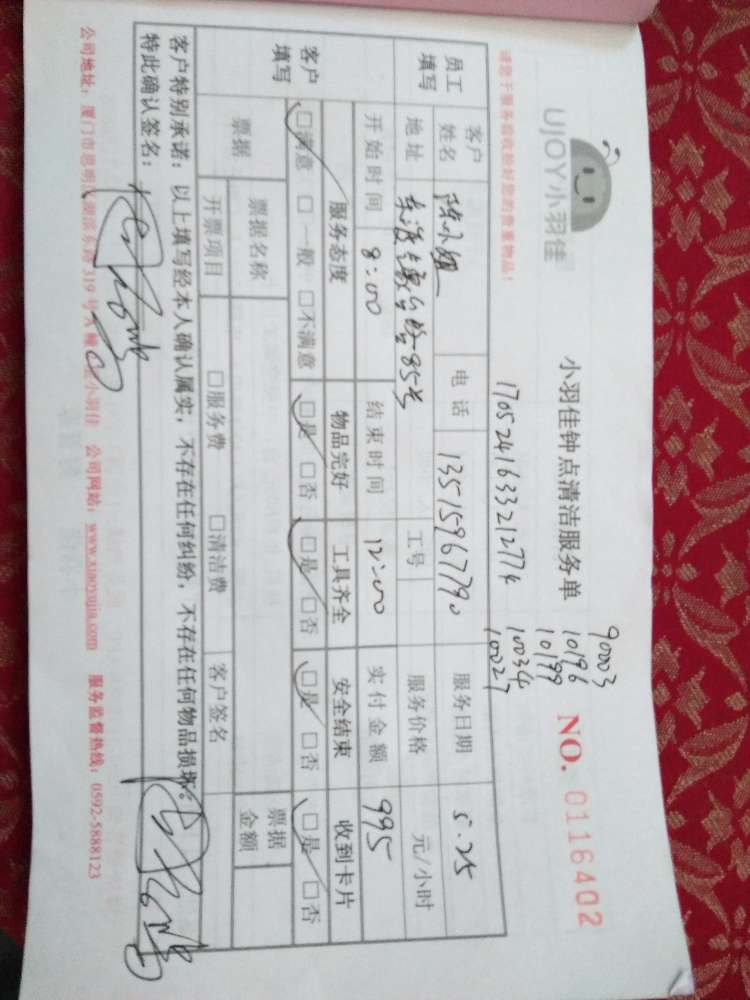 UJOY小羽佳
小羽佳钟点清洁服务单
NO. 0116402
90003
10196
10199
10034
10027
1705241633212774
请您于服务前收拾好您的贵重物品!
员工填写
客户姓名 陈小姐 电话 13515967790 服务日期 5.25
地址 85号 工号 服务价格 元/小时
开始时间 8:00 结束时间 12:00 实付金额 995
客户填写
服务态度 物品完好 工具齐全 安全结束 收到卡片
□满意 □一般 □不满意 □是 □否 □是 □否 □是 □否 □是 □否
票据 票据名称 票据金额
开票项目 □服务费 □清洁费 客户签名
客户特别承诺:以上填写经本人确认属实,不存在任何纠纷,不存在任何物品损坏。
特此确认签名:
公司地址:厦门市思明区湖滨东路319号A幢 小羽佳 公司网站:www.xiaoyujia.com 服务监督热线:0592-5888123